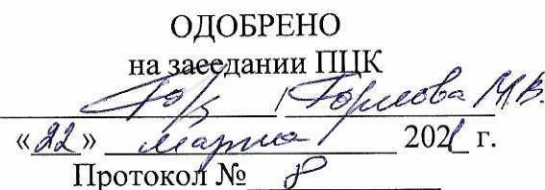 ОДОБРЕНО
на заседании ПЦК
/ Горлова М.В.
«22» марта 2021 г.
Протокол № 8